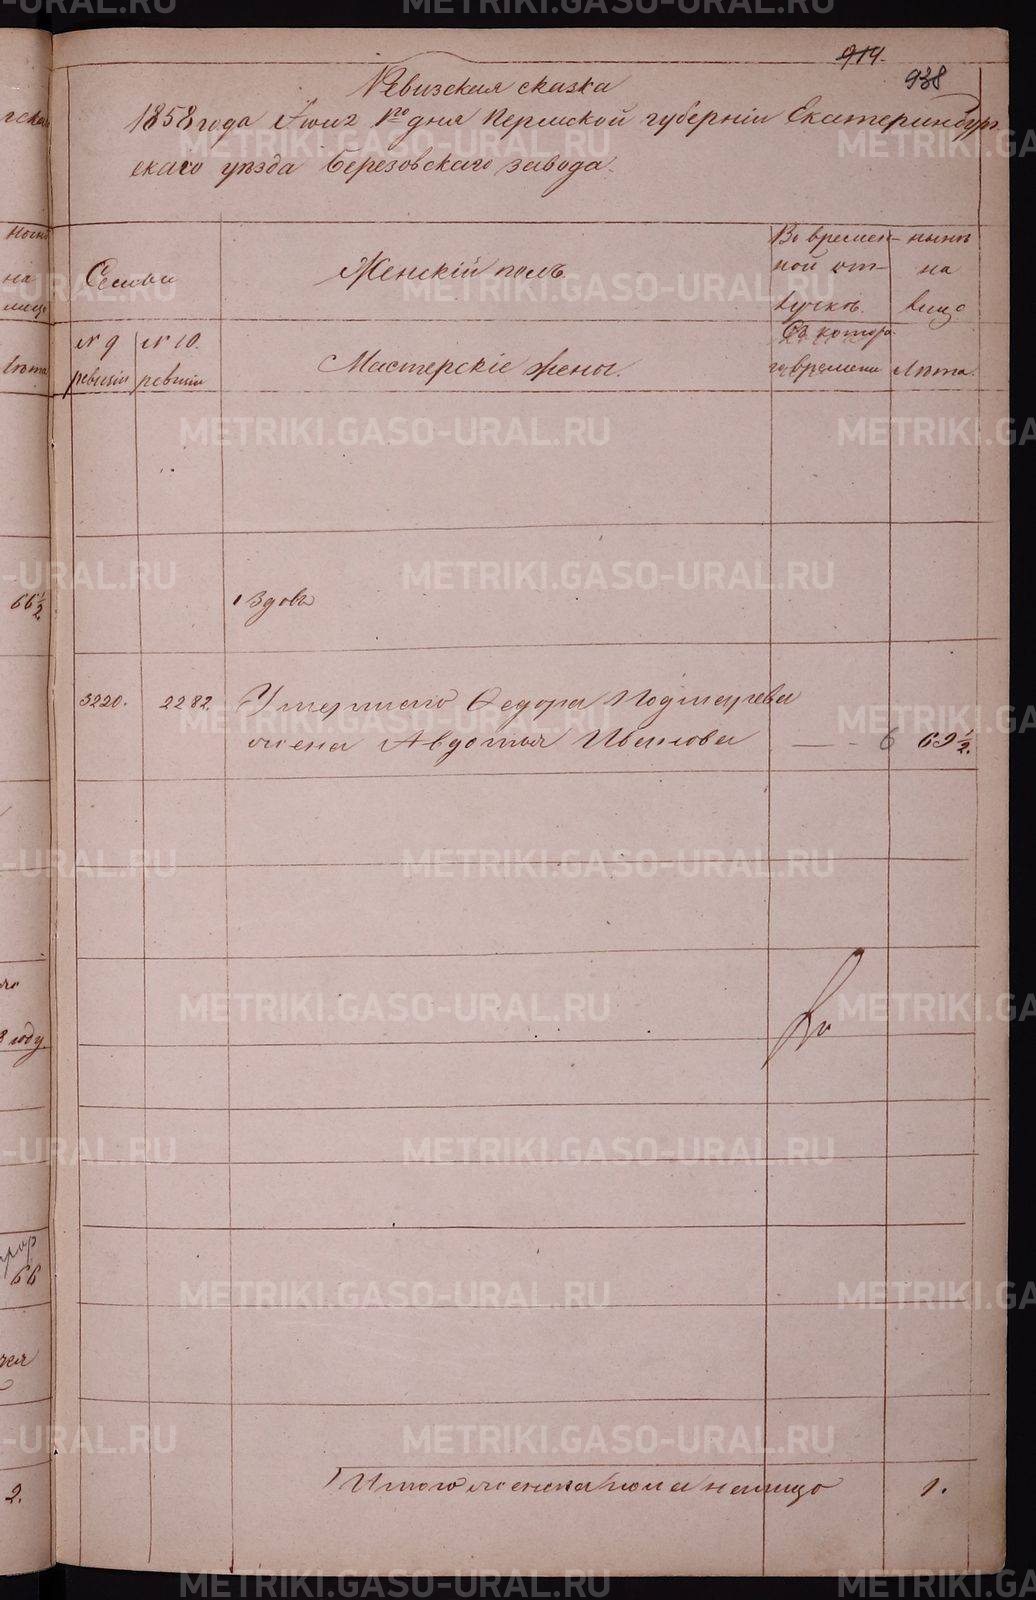 914.
938
Ревизская сказка
1858 года Июня 1го дня Пермской губернiи Екатеринбург
скаго уѣзда Березовскаго завода.
Семьи
Женскiй полъ.
Во времен-
ной от-
лучкѣ.
нынѣ
на
лицо
№ 9
ревизiи
№ 10.
ревизiи
Мастерскiе жены.
Съ котора
го времени
Лѣта.
Вдовы
3220.
2282
Умершаго Федора
жена Авдотья Иванова
6
69 1/2.
Итого женска пола на лицо
1.
66 1/2
году
66
2.
METRIKI.GASO-URAL.RU